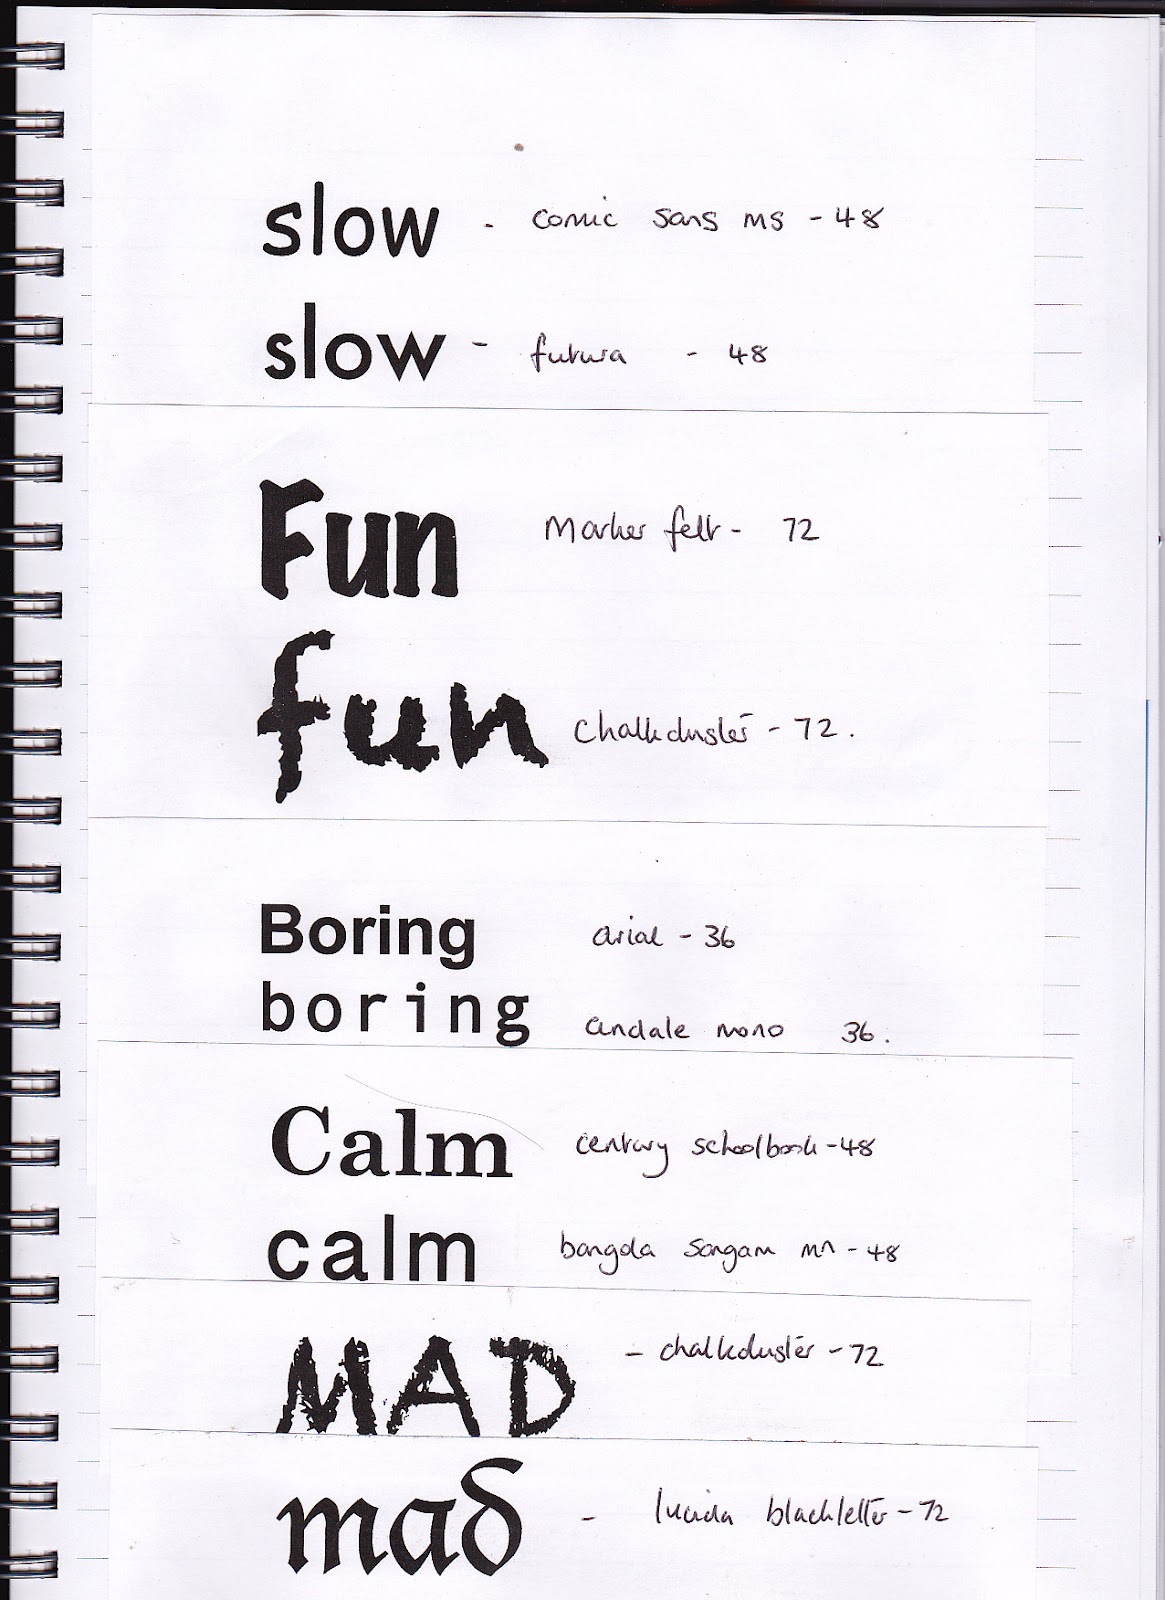 slow - comic sans ms - 48
slow - futura - 48
Fun Marker felt - 72
fun Chalkduster - 72.
Boring arial - 36
boring andale mono 36.
Calm century schoolbook - 48
calm bangla sangam mn - 48
MAD - chalkduster - 72
mad - lucida blackletter - 72